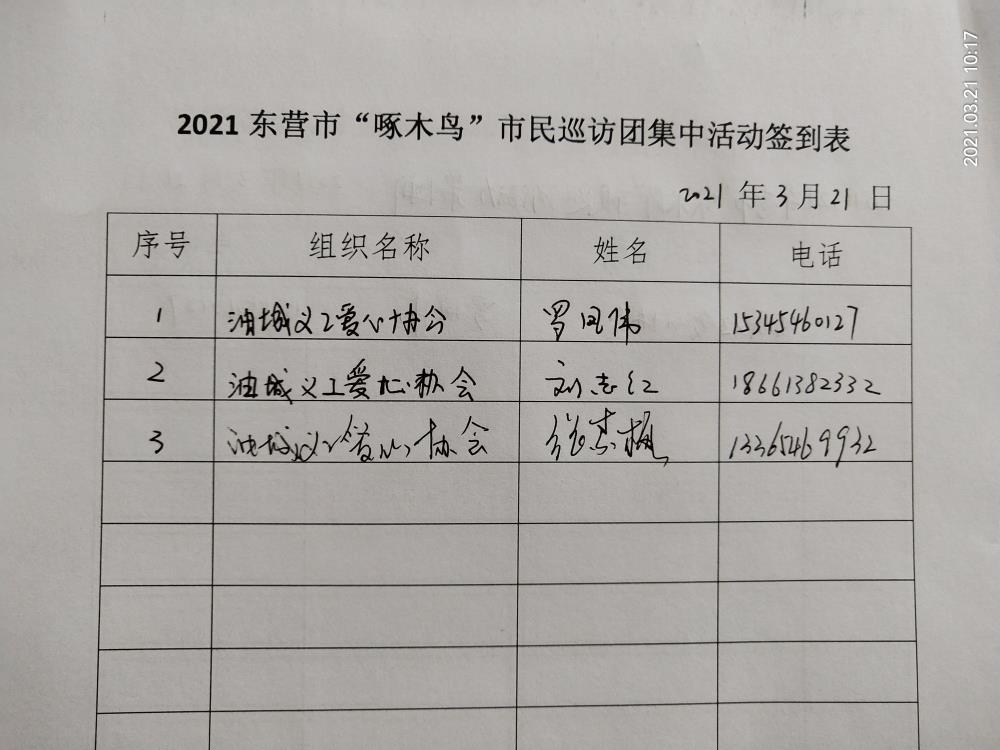 2021.03.21 10:17
2021东营市“啄木鸟”市民巡访团集中活动签到表
2021 年 3 月 21 日
序号 组织名称 姓名 电话
1 油城义工爱心协会 罗凤伟 15345460127
2 油城义工爱心协会 刘志红 18661382332
3 油城义工爱心协会 13365469932